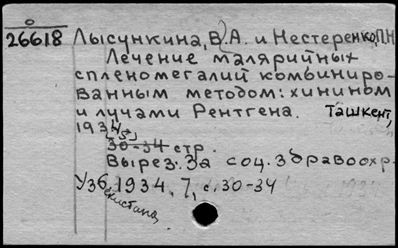 26618 Лысункина, В.А. и Нестеренко, П.Н
Лечение малярийных
спленомегалий комбиниро-
ванным методом: хинином
и лучами Рентгена. Ташкент,
1934
30-34 стр.
Вырез: За соц. здравоохр.
Узбекистана, 1934, 7, с. 30-34